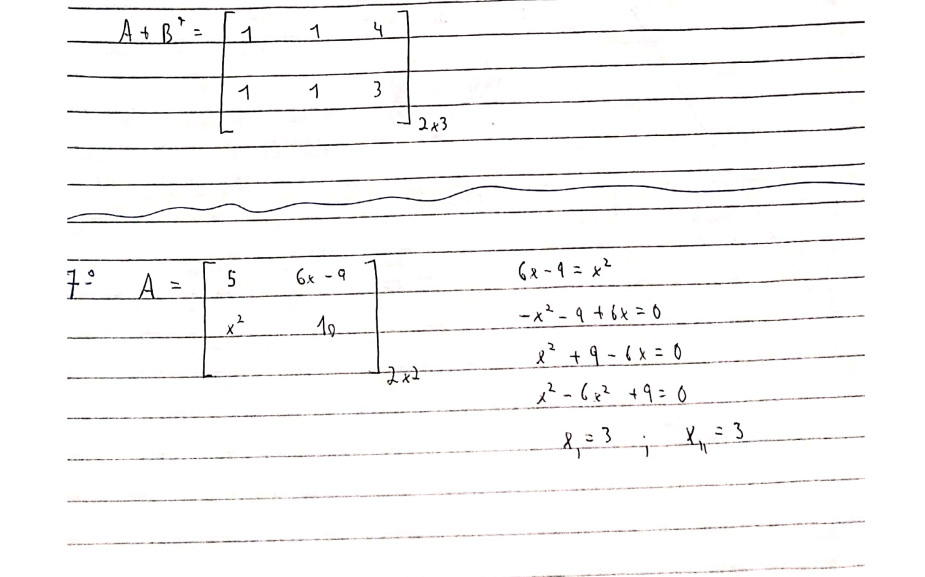 A + Bᵀ = [ 1 1 4
1 1 3 ] 2x3
7º A = [ 5 6x - 9
x² 10 ] 2x2
6x - 9 = x²
-x² - 9 + 6x = 0
x² + 9 - 6x = 0
x² - 6x² + 9 = 0
x₁ = 3 ; x₁₁ = 3